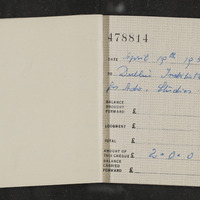 478814
DATE April 19th 195
TO Dublin Institut
for Adv. Studies
BALANCE
BROUGHT
FORWARD £
LODGMENT £
TOTAL £
AMOUNT OF
THIS CHEQUE £ 2-0-0
BALANCE
CARRIED
FORWARD £